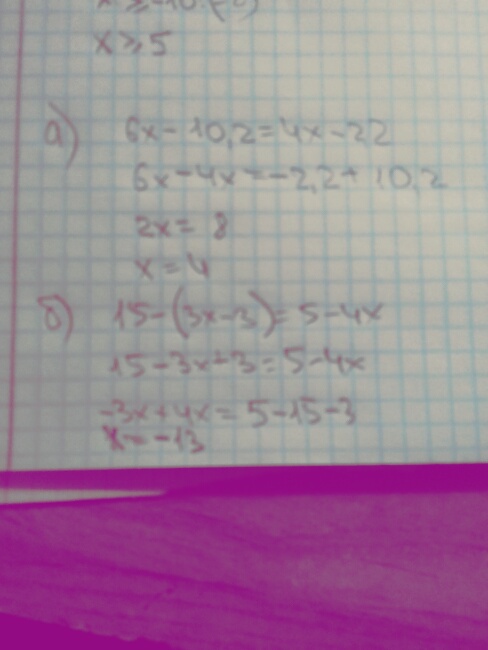 x ≥ -10:(-2)
x ≥ 5
а) 6x - 10,2 = 4x - 2,2
6x - 4x = -2,2 + 10,2
2x = 8
x = 4
б) 15 - (3x - 3) = 5 - 4x
15 - 3x + 3 = 5 - 4x
-3x + 4x = 5 - 15 - 3
x = -13